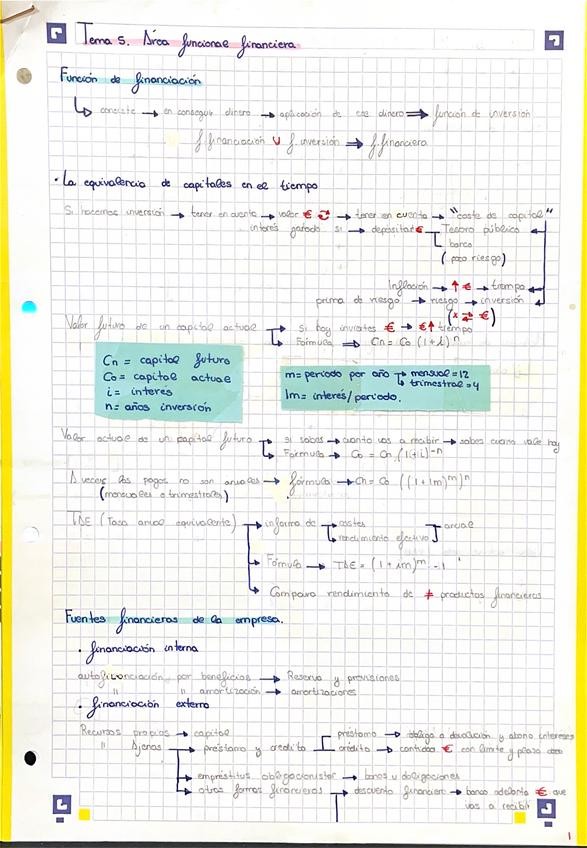 Tema 5. Área funcional financiera
Función de financiación
↳ consiste → en conseguir dinero → aplicación de ese dinero ⇒ función de inversión
f. financiación ∪ f. inversión ⇒ f. financiera
· La equivalencia de capitales en el tiempo
Si hacemos inversión → tener en cuenta → valor € ⇄ → tener en cuenta → "coste de capital"
interés ganado si → depositar € Tesoro público
banco
(poco riesgo)
Inflación → ↑ € → tiempo
prima de riesgo → riesgo → inversión
(x ⇄ €)
Valor futuro de un capital actual → si hoy inviertes € → €↑ tiempo
→ Fórmula → Cn = Co (1+i)^n
Cn = capital futuro
Co = capital actual
i = interés
n = años inversión
m = periodo por año → mensual = 12
↳ trimestral = 4
Im = interés/periodo.
Valor actual de un capital futuro → si sabes → cuanto vas a recibir → sabes cuanto vale hoy
→ Fórmula → Co = Cn (1+i)^-n
A veces los pagos no son anuales → fórmula → Cn = Co ((1+Im)^m)^n
(mensuales o trimestrales)
TAE (Tasa anual equivalente) → informa de costes anual
rendimiento efectivo
→ Fórmula → TAE = (1+im)^m -1
→ Compara rendimiento de ≠ productos financieros
Fuentes financieras de la empresa.
· financiación interna
autofinanciación por beneficios → Reserva y provisiones
" " amortización → amortizaciones
· financiación externa
Recursos propios → capital
" Ajenos → préstamo y credito préstamo → obliga a devolución y abono intereses
crédito → cantidad € con limite y plazo
→ empréstitos obligacionistas → bonos u obligaciones
→ otras formas financieras → descuento financiero → banco adelanta € que
vas a recibir
1